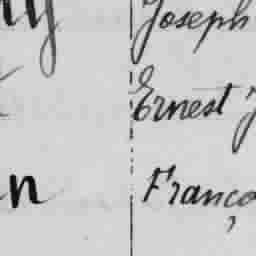 Joseph
Ernest J
n Franço